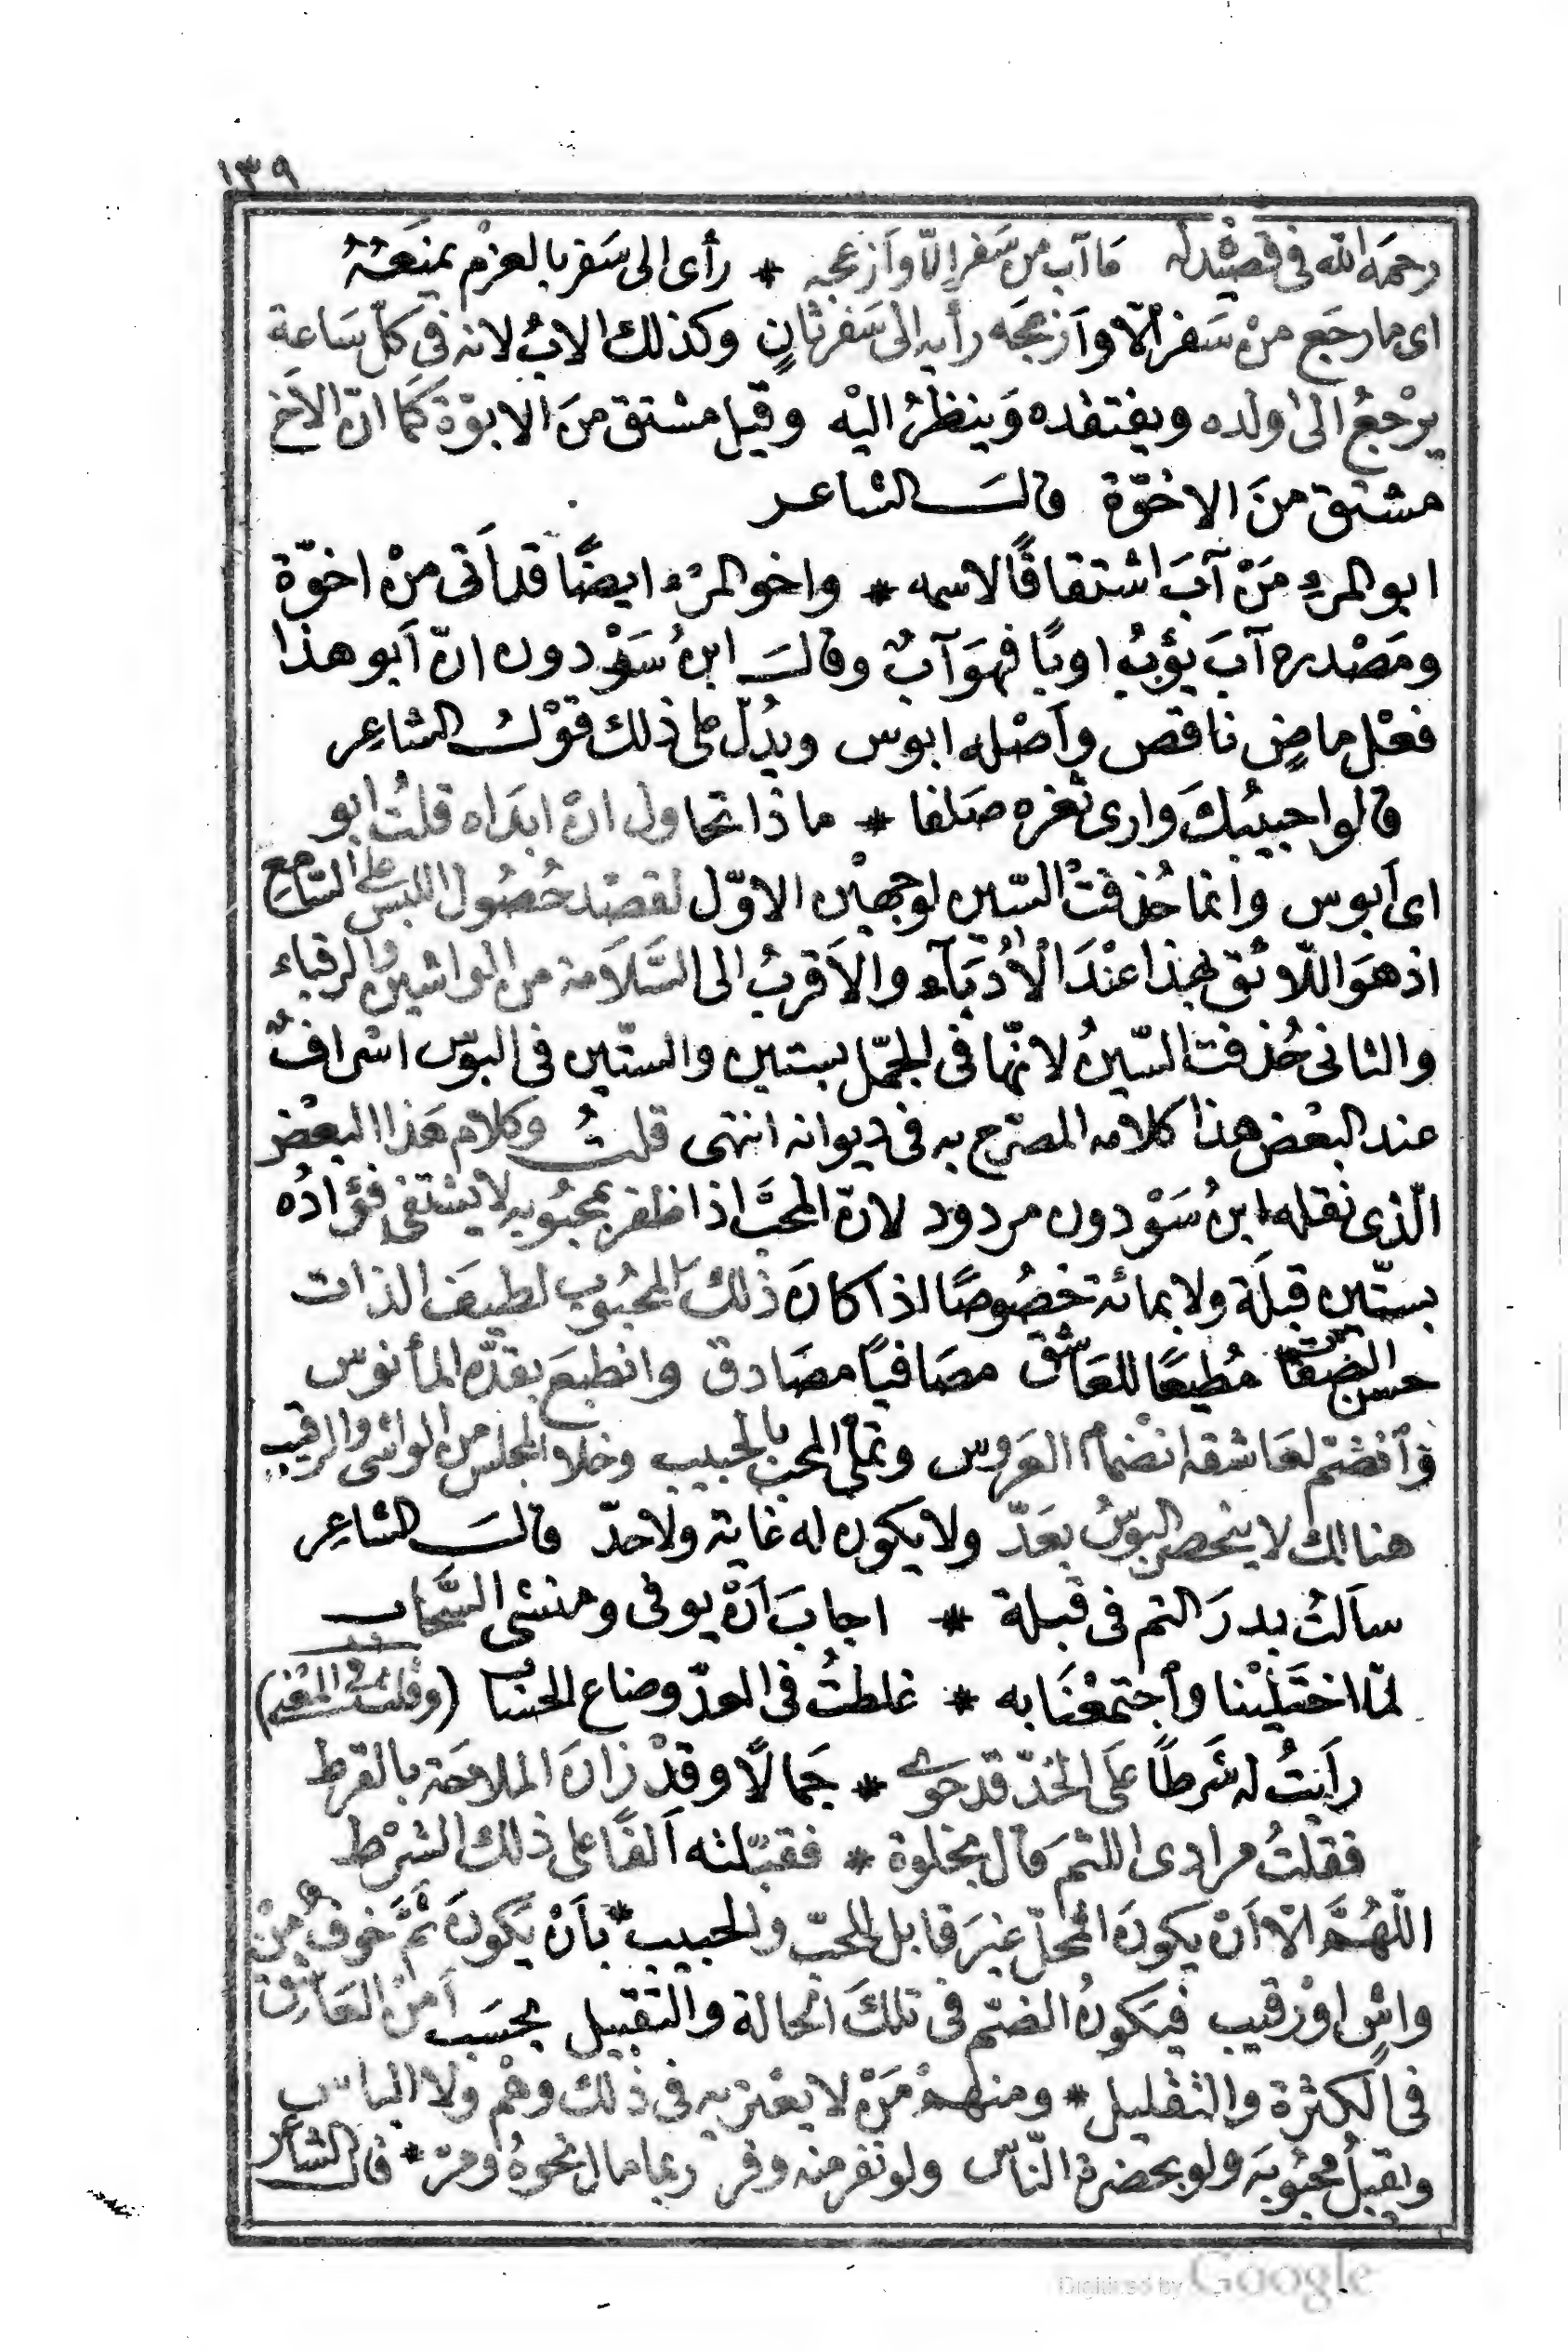 ١٣٩
رحمه الله فى قصيدله ما آب من سفر الّا وازعجه * رأى الى سفر بالعزم يمنعهُ
اى ما رجَع منْ سَفر الّا وازعجَه رأيه الى سَفر ثانٍ وكذلك الابُ لانه فى كلّ سَاعة
يرْجعُ الىٰ ولده ويفتقده وَينظرُ اليْه وقيل مشتق منَ الابوّة كمَا انّ الاخ
مشتق منَ الاخوّة قالَ الشاعر
ابو المرءِ مَنْ آبَ اشتقاقًا لاسمه * واخو المرْء ايضًا قد أتى منْ اخوّة
ومَصْدره آبَ يؤبُ اوبًا فهوَ آبٌ وقالَ ابنُ سَوْدون انّ أبو هذا
فعْل ماضٍ ناقص وأصْله ابوس ويدُلّ على ذلك قوْلُ الشاعِر
قالوا حبيبُكَ وارى ثغره صَلفا * ما ذا تحاول ان ابدَاه قلتُ ابو
اى أبوس وانما حُذفتْ السّين لوجهيْن الاوّل لقصْد حُصُول اللبس على السَّامع
اذ هوَ اللّائق بهذا عنْدَ الْأُدَبَآء والأقربُ الى السَّلَامة من الواشين والرقباء
والثانى حُذفت السّينُ لانّها فى الجمّل بستين والستّين فى البوْس اسْرافٌ
عند البعْض هذا كلامه المصرّح به فى ديوانه انتهى قلتُ وكلام هَذا البعْض
الّذى نقله ابنُ سَوْدون مردود لانّ المحبَّ اذا ظفر بمحبُوبه لا يشتفى فؤادُه
بستّين قبلَة ولا بمائة خصُوصًا اذا كانَ ذلكَ المحبُوب لطيفَ الذات
حسن الصّفَات مُطيعًا للعَاشق مصَافيًا مصَادق وانطبعَ بقدّه المأنوس
وَٱنْضمّ لعَاشقه انضمام العَروس وتملّى المحبّ بالحبيب وخلا المجلس من الواشى والرقيب
هنالك لا ينحصر البوْسُ بعَدّ ولا يكون له غاية ولا حدّ قالَ الشاعِر
سألتُ بدرَ التم فى قبلة * اجابَ أنْ يوفى ومنشى السَّحاب
لمّا اختَليْنا واجتمعْنَا به * غلطتُ فى العدّ وضاع الحسَاب (وقلت فى المعْنى)
رأيتُ له شَرطًا عَلَى الخدّ قد حَوى * جَمالًا وقدْ زانَ الملاحَة بالقرط
فقلْتُ مرادى اللثم قال بخلوة * فقبّلته ألفًا على ذلك الشرْط
اللّهُمَّ الّا أنْ يكونَ المحلّ غيرَ قابل للمحبّ والحبيب* بأنْ يَكونَ ثَمَّ خوفٌ منْ
واشٍ اوْ رقيب فيَكونُ الضّم فى تلكَ الحالة والتقبيل بحسَب أمنْ العَاشق
فى الكثرة والتقليل* ومنهمْ مَنْ لا يعْتريه فى ذلك وهْم ولا الباس
ويقبلُ محبُوبَه ولو بحضرة النّاس ولو نفر منه وفر ربما مال نحوهُ ومرّ* قال الشاعر